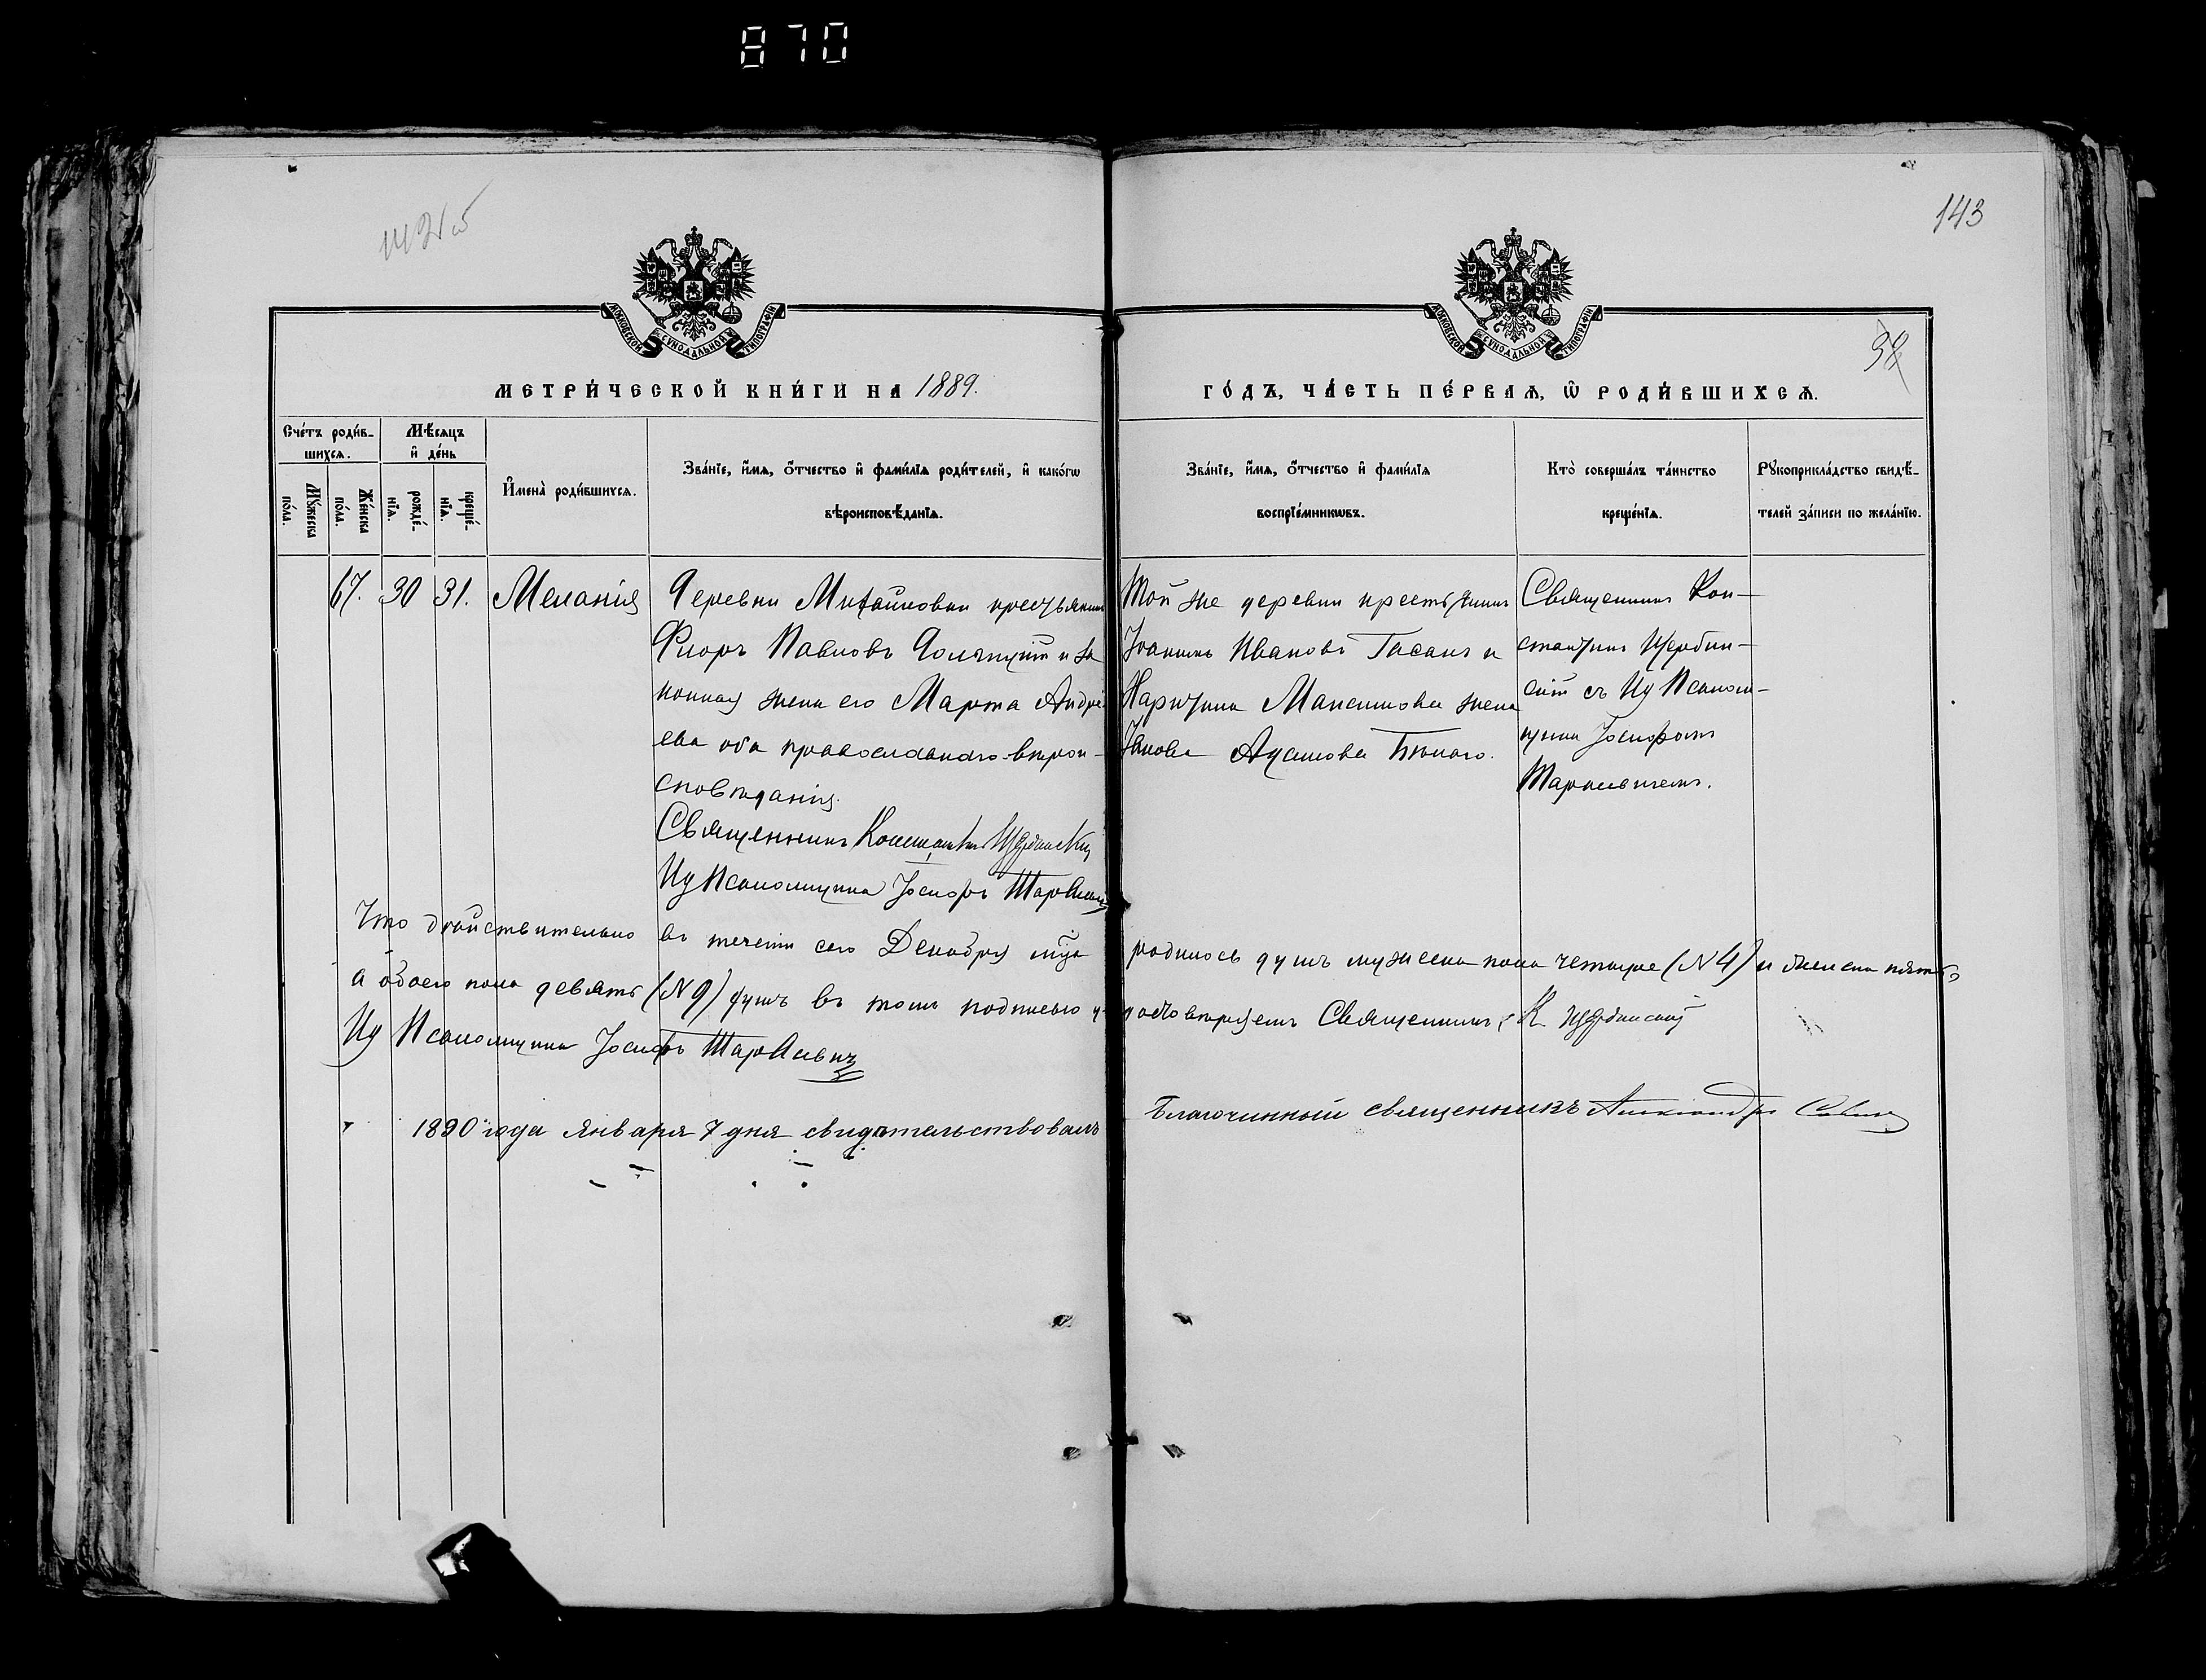 870
143
МОСКОВСКОЙ СѴНОДАЛЬНОЙ ТИПОГРАФІИ
МОСКОВСКОЙ СѴНОДАЛЬНОЙ ТИПОГРАФІИ
МЕТРИ́ЧЕСКОЙ КНИ́ГИ НА 1889.
ГО́ДЪ, ЧА́СТЬ ПЕ́РВАѦ, Ѡ҆ РОДИ́ВШИХСѦ.
Сче́тъ роди́в-
шихсѧ.
Мѣ́сѧцъ
и҆ де́нь
Мꙋ́жеска
по́ла.
Же́нска
по́ла.
рожде́-
нїѧ.
креще́-
нїѧ.
И҆мена̀ роди́вшихсѧ.
Зва́нїе, и҆́мѧ, ѻ҆́тчество и҆ фами́лїѧ роди́телей, и҆ како́гѡ
вѣроисповѣ́данїѧ.
Зва́нїе, и҆́мѧ, ѻ҆́тчество и҆ фами́лїѧ
воспрїе́мникѡвъ.
Кто̀ соверша́лъ та́инство
креще́нїѧ.
Рꙋкоприкла́дство свидѣ́-
телей за́писи по жела́нїю.
67. 30 31. Меланія
Деревни Михайловки крестьянинъ
Флоръ Павловъ и за
конная жена его Марта Андре
ева оба православнаго вѣрои-
сповѣданія.
Священникъ Константинъ Щербинскій
Ид Псаломщика Іосифъ Тарасевичъ
Той же деревни крестьянинъ
Іоаннъ Ивановъ Гасанъ и
Максимова жена
Іакова Адамова
Священникъ Кон-
стантинъ Щербин-
скій съ Ид Псалом-
щика Іосифомъ
Тарасевичемъ.
Что дѣйствительно въ теченіи сего Декабря мца родилось душъ мужеска пола четыре (N 4) и женска пять
а обоего пола девять (N 9) душъ въ томъ подписью удостовѣряемъ Священникъ К Щербинскій
Ид Псаломщика Іосифъ Тарасевичъ
1890 года Января 7 дня свидѣтельствовалъ Благочинный священникъ Александръ